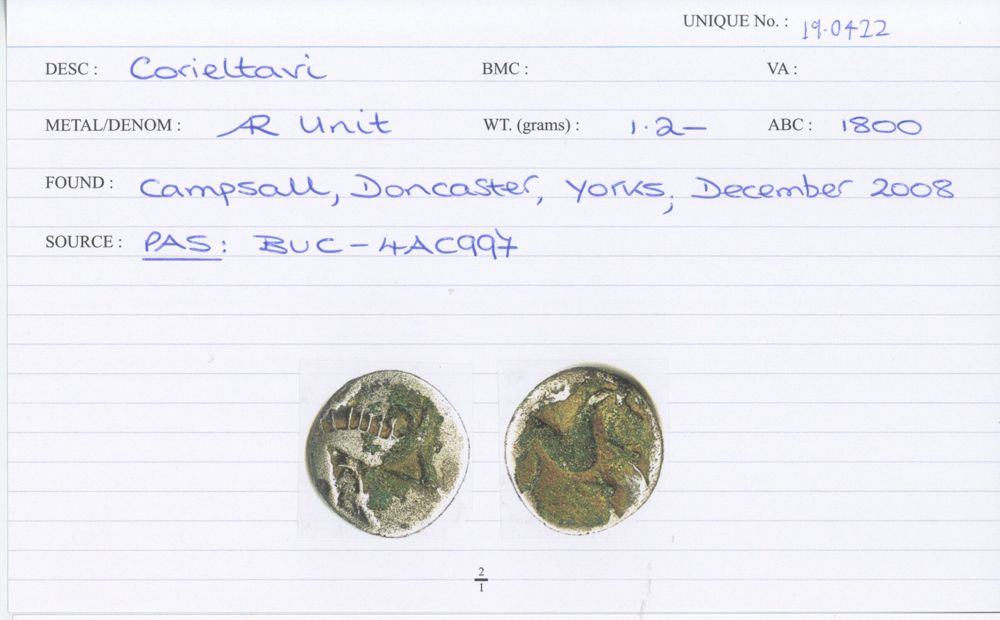 UNIQUE No. : 19.0422
DESC : Corieltavi BMC : VA :
METAL/DENOM : AR Unit WT. (grams) : 1.2— ABC : 1800
FOUND : Campsall, Doncaster, Yorks; December 2008
SOURCE : PAS: BUC-4AC997
2
1